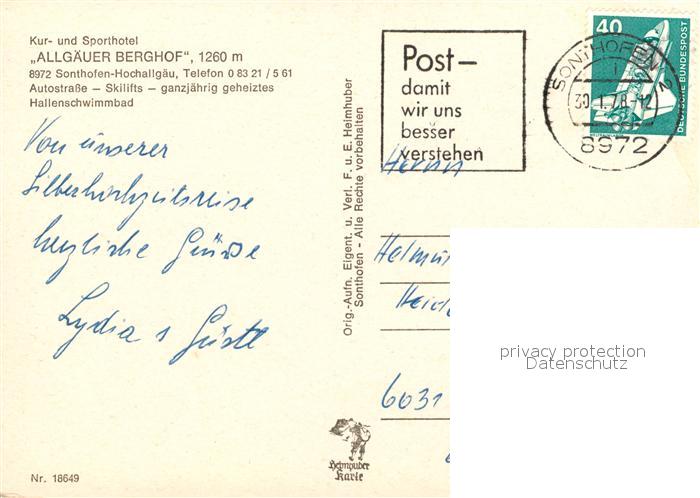 Kur- und Sporthotel
„ALLGÄUER BERGHOF“, 1260 m
8972 Sonthofen-Hochallgäu, Telefon 0 83 21 / 5 61
Autostraße – Skilifts – ganzjährig geheiztes
Hallenschwimmbad
Von unserer
Silberhochzeitsreise
herzliche Grüße
Lydia & Gustl
Nr. 18649
Orig.-Aufn. Eigent. u. Verl. F. u. E. Heimhuber
Sonthofen - Alle Rechte vorbehalten
Heimhuber
Karte
Post –
damit
wir uns
besser
verstehen
SONTHOFEN
30.1.78-12
8972
40
DEUTSCHE BUNDESPOST
Herrn
Helmut
Heid
6031
privacy protection
Datenschutz